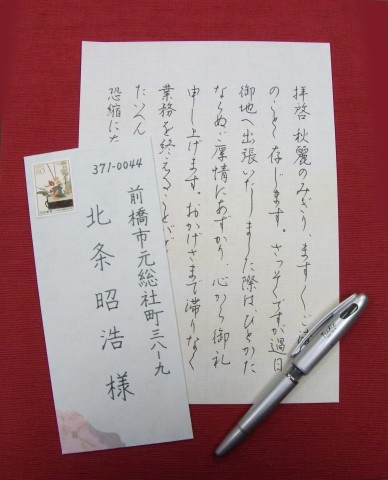 拝啓 秋麗のみぎり、ますますご
のことと存じます。さっそくですが過日
御地へ出張いたしました際は、ひとかた
ならぬご厚情にあずかり、心から御礼
申し上げます。おかげさまで滞りなく
業務を終えることがで
たいへん
恐縮に
80
371-0044
前橋市元総社町三八ー九
北条昭浩様